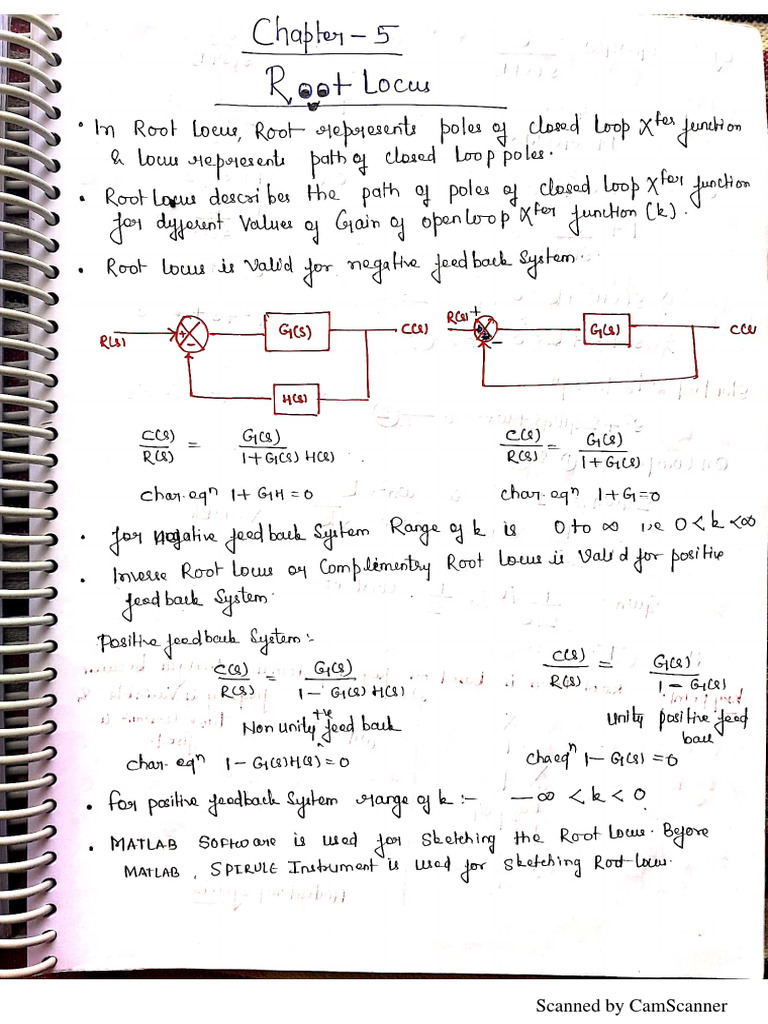 Chapter - 5
Root Locus
• In Root Locus, Root represents poles of closed loop Xfer function
& locus represents path of closed loop poles.
• Root Locus describes the path of poles of closed loop Xfer function
for different values of Gain of open loop Xfer function (k).
• Root Locus is valid for negative feedback System.
R(s) + − G(s) C(s) H(s)
R(s) + − G(s) C(s
C(s)/R(s) = G(s)/1+G(s) H(s) C(s)/R(s) = G(s)/1+G(s)
Char. eqn 1+GH=0 Char. eqn 1+G=0
• for negative feedback System Range of k is 0 to ∞ i.e 0<k<∞
• Inverse Root Locus or Complimentry Root Locus is Valid for positive
feedback System.
Positive feedback System :-
C(s)/R(s) = G(s)/1− G(s) H(s) C(s)/R(s) = G(s)/1 − G(s)
Non unity +ve feed back Unity positive feed
back
char. eqn 1−G(s)H(s)=0 Chaeqn 1−G(s)=0
• for positive feedback System range of k :- −∞ <k< 0
• MATLAB Software is used for Sketching the Root Locus. Before
MATLAB, SPIRULE Instrument is used for Sketching Root-locus.
Scanned by CamScanner